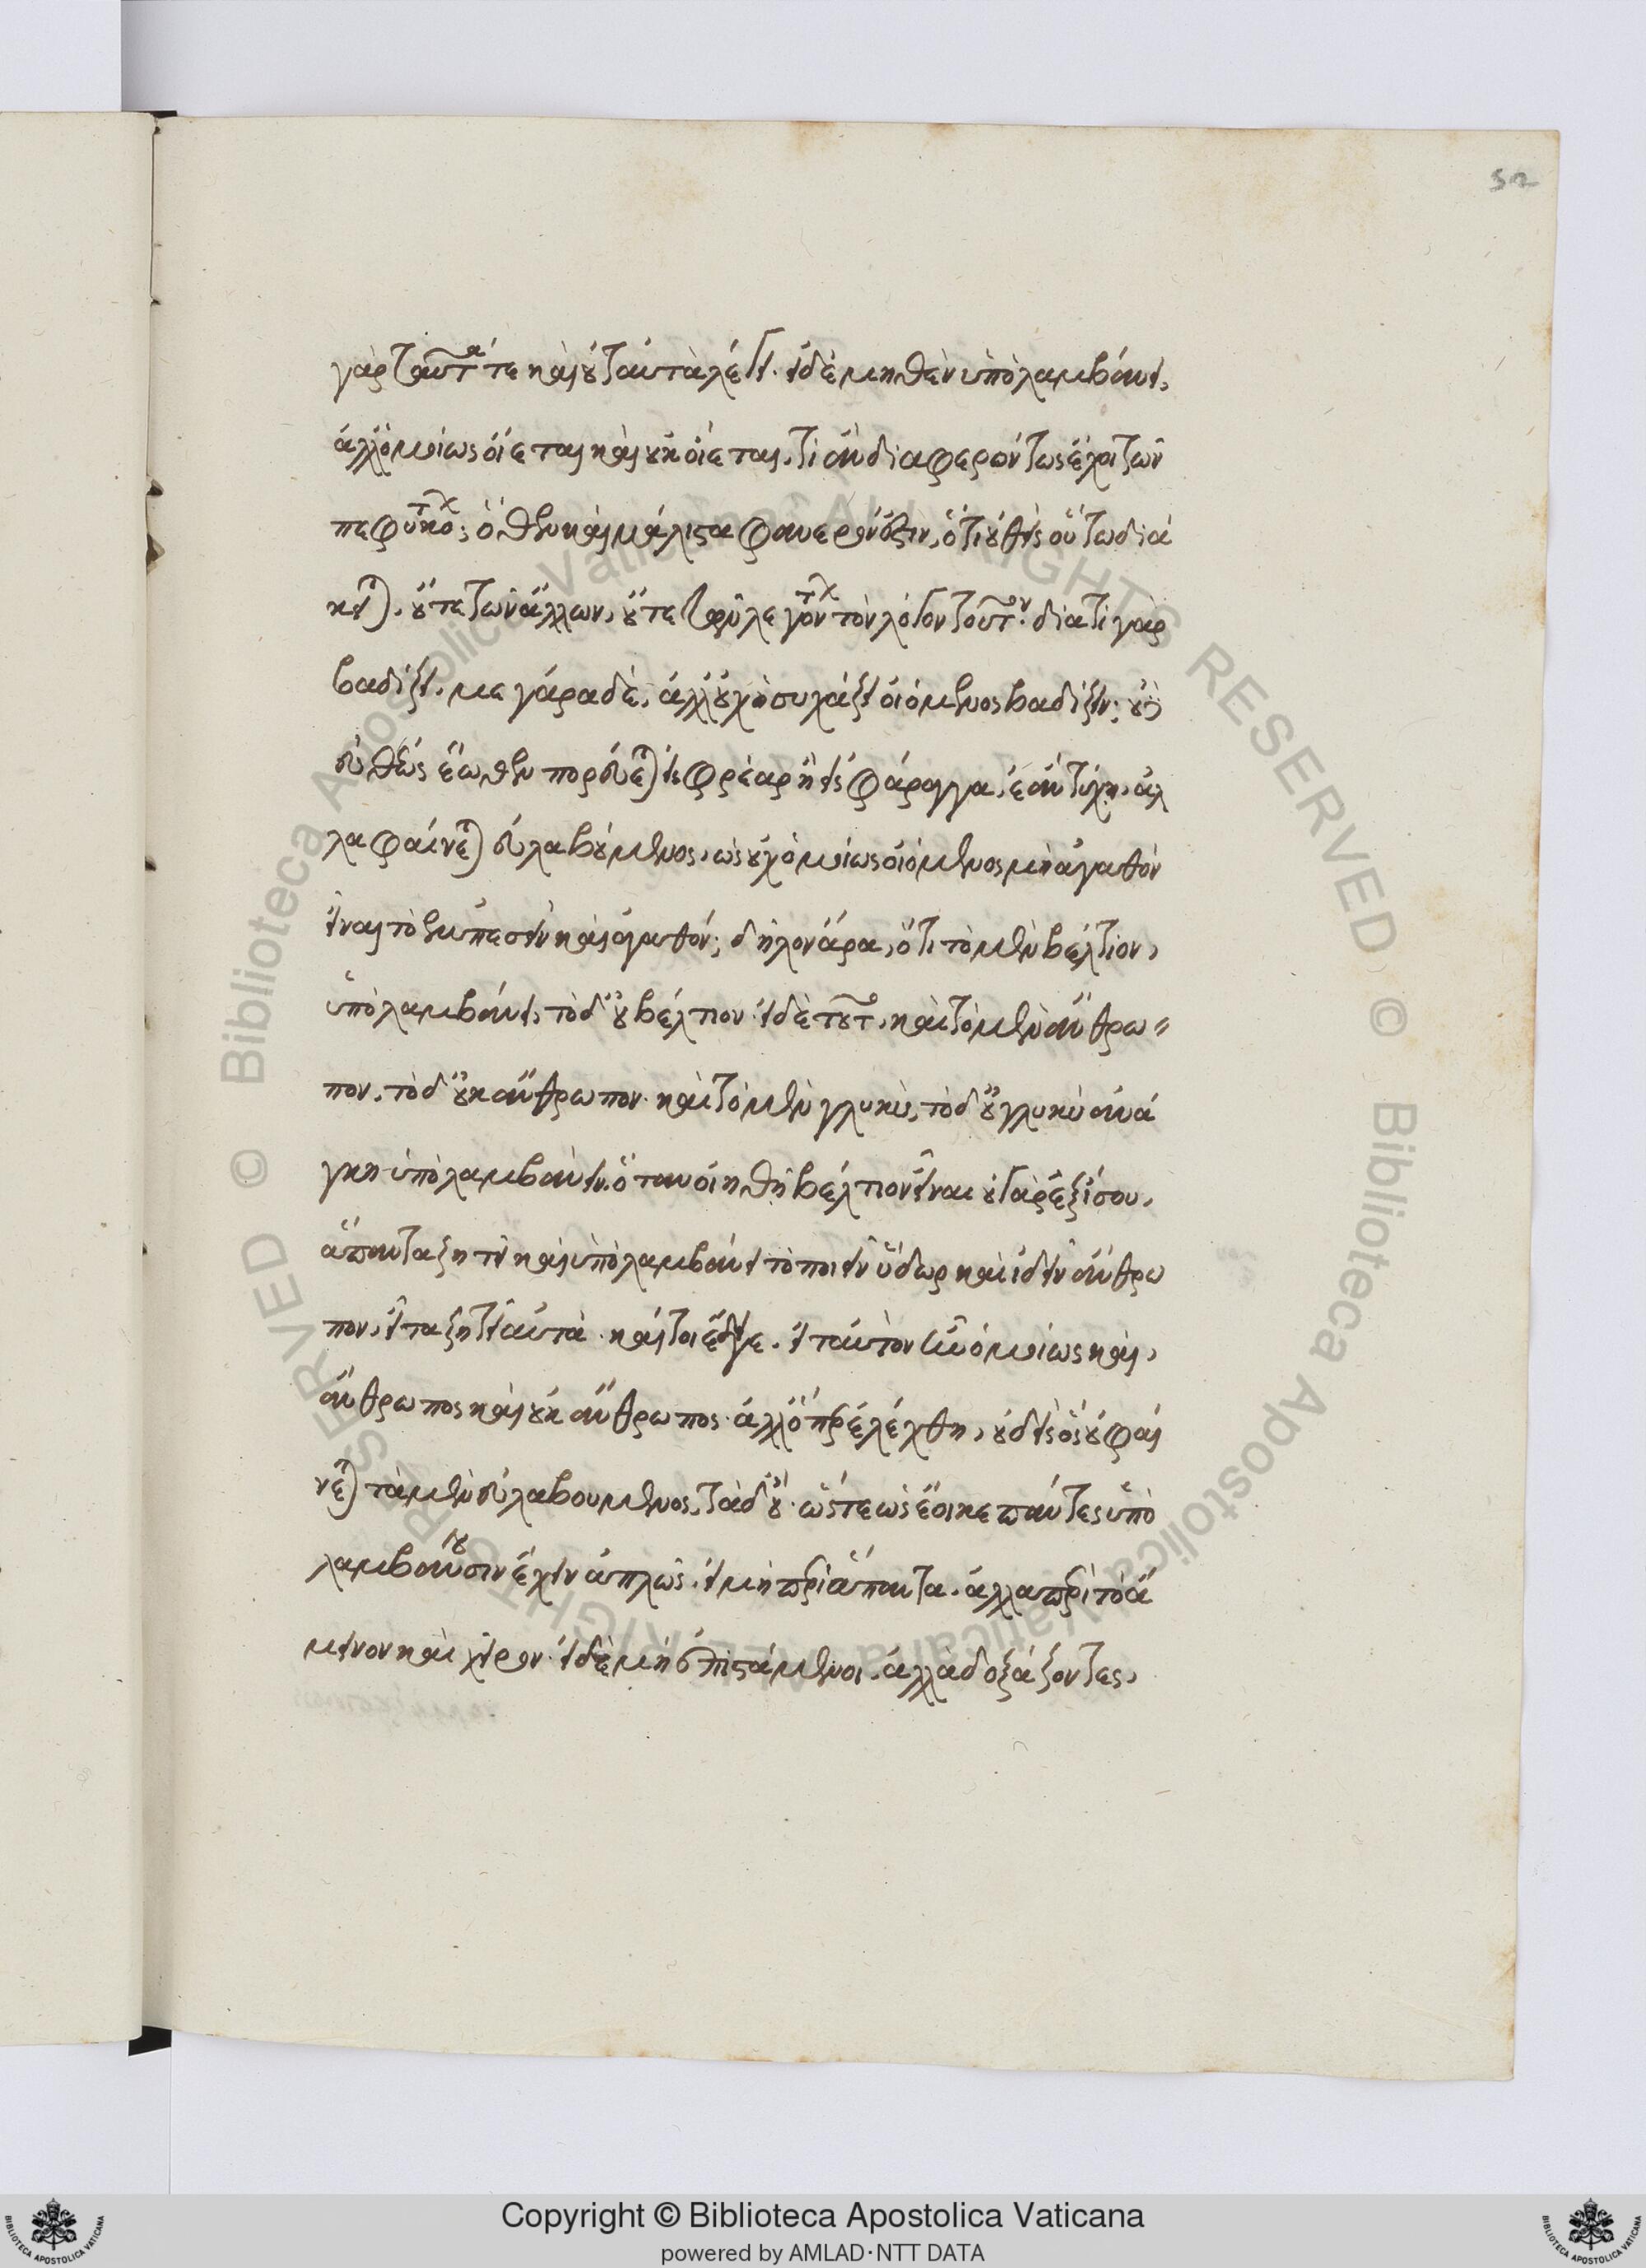 52
γὰρ ταῦτά τε καὶ οὐ ταῦτα λέγει. εἰ δὲ μηθὲν ὑπολαμβάνει,
ἀλλ' ὁμοίως οἴεται καὶ οὐκ οἴεται, τί ἂν διαφερόντως ἔχοι τῶν
πεφυκό; ὅθεν καὶ μάλιστα φανερόν ἐστιν, ὅτι οὐθεὶς οὕτω διά
κειται, οὔτε τῶν ἄλλων, οὔτε τῶν λεγόντων τὸν λόγον τοῦτον. διατί γὰρ
βαδίζει μέγαράδε, ἀλλ' οὐχ ἡσυχάζει οἰόμενος βαδίζειν; οὐδ'
εὐθέως ἕωθεν πορεύεται εἰς φρέαρ ἢ εἰς φάραγγα, ἐὰν τύχῃ, ἀλ
λὰ φαίνεται εὐλαβούμενος, ὡς οὐχ ὁμοίως οἰόμενος μὴ ἀγαθὸν
εἶναι τὸ ἐμπεσεῖν καὶ ἀγαθόν; δῆλον ἄρα, ὅτι τὸ μὲν βέλτιον,
ὑπολαμβάνει, τὸ δ' οὐ βέλτιον. εἰ δὲ τοῦτο, καὶ τὸ μὲν ἄνθρω
πον, τὸ δ' οὐκ ἄνθρωπον. καὶ τὸ μὲν γλυκὺ, τὸ δ' οὐ γλυκὺ ἀνά
γκη ὑπολαμβάνειν. ὅταν οἰηθῇ βέλτιον εἶναι οὐ γὰρ ἐξίσου,
ἅπαντα ζητεῖ καὶ ὑπολαμβάνει τὸ πιεῖν ὕδωρ καὶ ἰδεῖν ἄνθρω
πον, εἶτα ζητεῖ αὐτά. καίτοι ἔδει γε. εἰ ταὐτὸν ἦν ὁμοίως καὶ,
ἄνθρωπος καὶ οὐκ ἄνθρωπος. ἀλλ' ὅπερ ἐλέχθη, οὐδεὶς ὃς οὐ φαί
νεται τὰ μὲν εὐλαβούμενος, τὰ δ' οὔ. ὥστε ὡς ἔοικε πάντες ὑπο
λαμβάνουσιν ἔχειν ἁπλῶς. εἰ μὴ περὶ ἅπαντα. ἀλλὰ περὶ τὸ ἄ
μεινον καὶ χεῖρον. εἰ δὲ μὴ ἐπιστάμενοι. ἀλλὰ δοξάζοντες,
Copyright © Biblioteca Apostolica Vaticana
powered by AMLAD·NTT DATA
© Biblioteca Apostolica Vaticana ALL RIGHTS RESERVED © Biblioteca Apostolica Vaticana ALL RIGHTS RESERVED